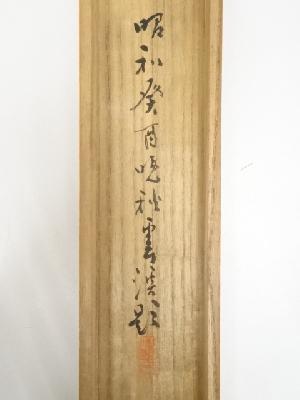 昭和癸酉晩秋雲溪題